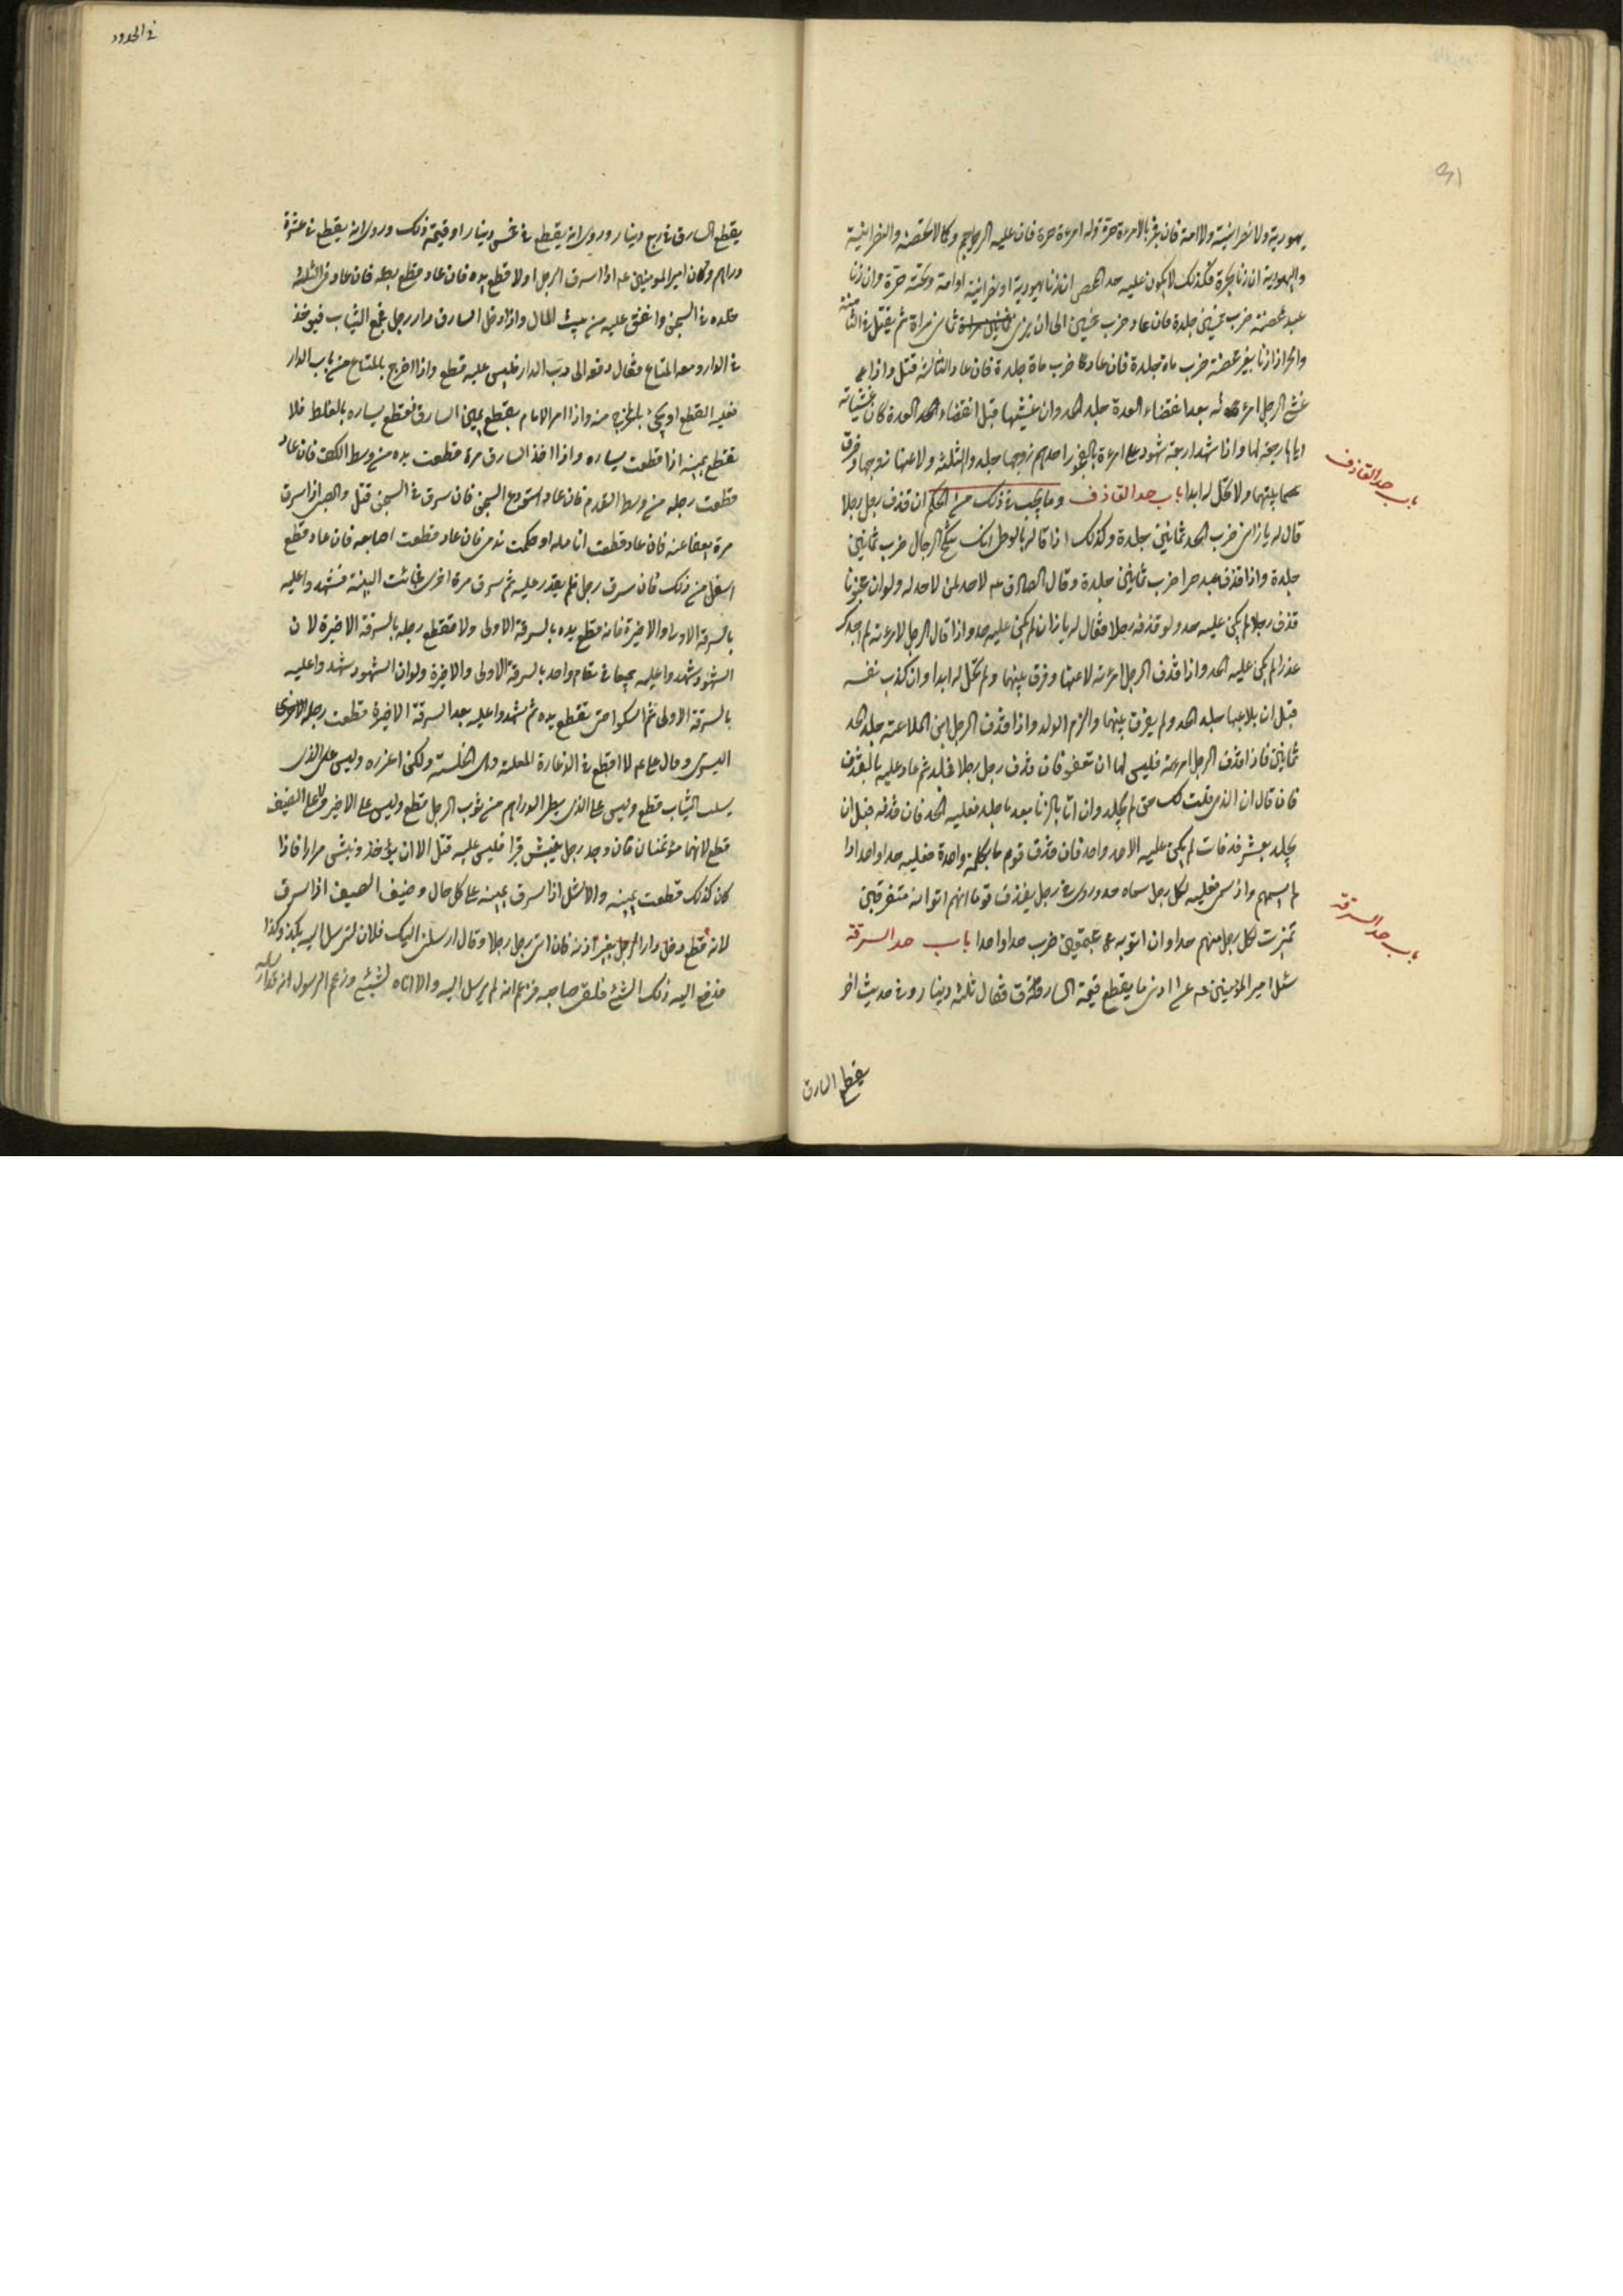 في الحدود
٣١
يهودية ولا نصرانية ولا امة فان فجر بالامرءة حرة وله امرءة حرة فان عليه الرجم وكما لا تحصنه والنصرانية
واليهودية ان زنا بحرة فكذلك لا يكون عليه حد المحصن ان زنا بيهودية او نصرانية او امة وتحته حرة وان زنا
عبد بمحصنة ضرب خمسين جلدة فان عاد ضرب خمسين الى ان يزني ثماني مراة ثم يقتل في الثامنة
والحر اذا زنا بغير محصنة ضرب ماة جلدة فان عاد ضرب ماة جلدة فان عاد الثالثة قتل واذا
غشي الرجل امرءته بعد انقضاء العدة جلد الحد وان غشيها قبل انقضاء العدة كان غشيانه
اياها رجعة لها واذا شهد اربعة شهود على امرءة بالفجور احدهم زوجها جلد والثلثة ولاعنها زوجها وفرق
بينهما ولا تحل له ابدا باب حد القاذف وما يجب في ذلك من الحكم ان قذف رجل رجلا
باب حد القاذف
قال له يا زاني ضرب الحد ثمانين جلدة وكذلك اذا قال له يا لوطي انك تنكح الرجال ضرب ثمانين
جلدة واذا قذف عبد حرا ضرب ثمانين جلدة وقال الصادق عه لا حد لمن لا حد له ولو ان مجنونا
قذف رجلا لم يكن عليه حد ولو قذفه رجلا فقال له يا زان لم يكن عليه حد واذا قال الرجل لامرءته لم اجدك
عذراء لم يكن عليه الحد واذا قذف الرجل امرءته لاعنها وفرق بينهما ولم تحل له ابدا وان كذب نفسه
قبل ان يلاعنها جلد الحد ولم يفرق بينهما والزم الولد واذا قذف الرجل ابن الملاعنة جلد الحد
ثمانين فاذا قذف الرجل امرءته فليس لها ان تعفو فان قذف رجل رجلا فجلد ثم عاد عليه بالقذف
فان قال ان الذي قلت لك حق لم يجلد وان اتا بالزنا بعد ما جلد فعليه الحد فان قذفه قبل ان
يجلد بعشر قذفات لم يكن عليه الا حد واحد فان قذف قوم بكلمة واحدة فعليه حد واحد اذا
لم يسمهم واذ سمى فعليه لكل رجل سماه حد وروى في رجل يقذف قوما انهم اتوا به متفرقين
ضرب لكل رجل منهم حدا وان اتوا به مجتمعين ضرب حدا واحدا باب حد السرقة
باب حد السرقة
سئل امير المؤمنين عه عن ادنى ما يقطع فيه السارق فقال ثلث دينار وفي حديث اخر
يقطع السارق
يقطع السارق في ربع دينار وروى انه يقطع في خمس دينار او قيمة ذلك وروى انه يقطع في عشرة
دراهم وكان امير المومنين عه اذا سرق الرجل اولا قطع يده فان عاد قطع رجله فان عاد في الثلثة
خلده في السجن وانفق عليه من بيت المال واذا دخل السارق دار رجل فجمع الثياب فيوخذ
في الدار ومعه المتاع فقال دفعه الى رب الدار فليس عليه قطع واذا خرج بالمتاع من باب الدار
فعليه القطع او يجئ بالمخرج منه واذا امر الامام بقطع يمين السارق فقطع يساره بالغلط فلا
تقطع يمينه اذا قطعت يساره واذا اخذ السارق مرة قطعت يده من وسط الكف فان عاد
قطعت رجله من وسط القدم فان عاد استودع السجن فان سرق في السجن قتل والصبي اذا سرق
مرة يعفا عنه فان عاد قطعت انامله او حكت تدمى فان عاد قطعت اصابعه فان عاد قطع
اسفل من ذلك فان سرق رجل فلم يقدر عليه ثم سرق مرة اخرى فجائت البينة فشهدوا عليه
بالسرقة الاولى والاخيرة فانه تقطع يده بالسرقة الاولى ولا تقطع رجله بالسرقة الاخيرة لان
الشهود شهدوا عليه جميعا في مقام واحد بالسرقة الاولى والاخيرة ولو ان الشهود شهدوا عليه
بالسرقة الاولى ثم امسكوا حتى تقطع يده ثم شهدوا عليه بعد السرقة الاخيرة قطعت رجله
اليسرى وقال علي عه لا اقطع في الدغارة المعلنة وهي الخلسة ولكن اعزره وليس على الذي
يسلب الثياب قطع وليس على الذي يطر الدراهم من ثوب الرجل قطع وليس على الاجير ولا على الضيف
قطع لانهما مؤتمنان فان وجد رجل ينبش قبرا فليس عليه قتل الا ان يؤخذ ونبش مرارا فاذا
كان كذلك قطعت يمينه والاشل اذا سرق يمينه على كل حال وضيف الضيف اذا سرق
لانه قطع دخل دار الرجل بغير اذنه فان اتى رجل رجلا وقال ارسلني اليك فلان لترسل اليه بكذا وكذا
فدفع اليه ذلك الشئ فلقى صاحبه فزعم انه لم يرسل اليه والا اتاه بشئ وزعم الرسول انه قد ارسله